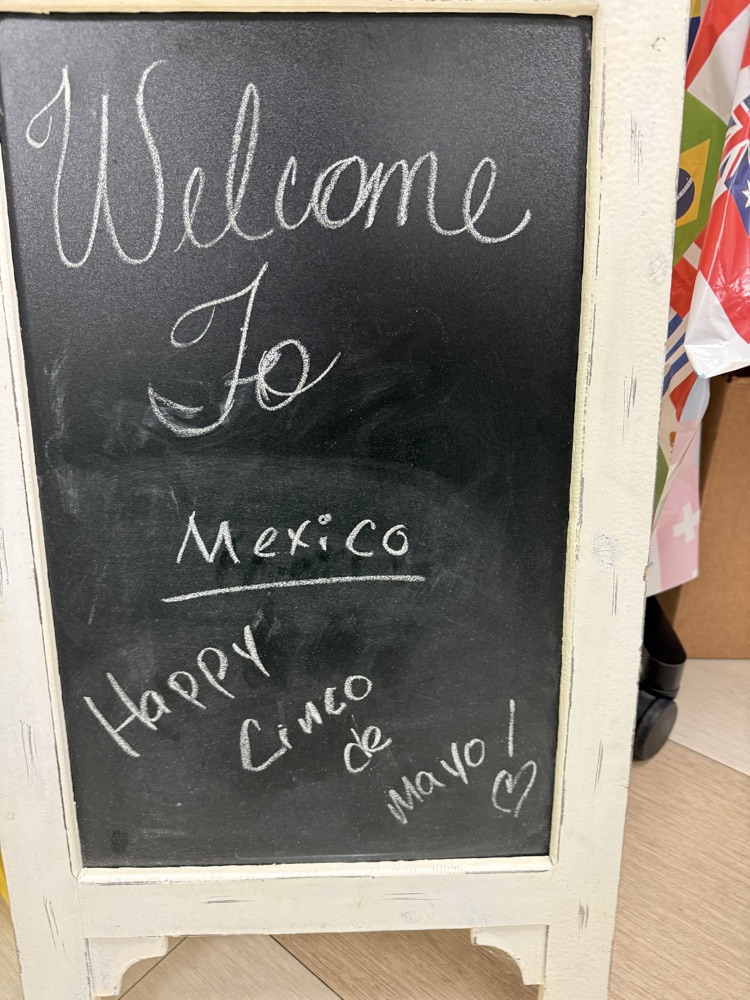 Welcome
To
Mexico
Happy
Cinco
de
Mayo!